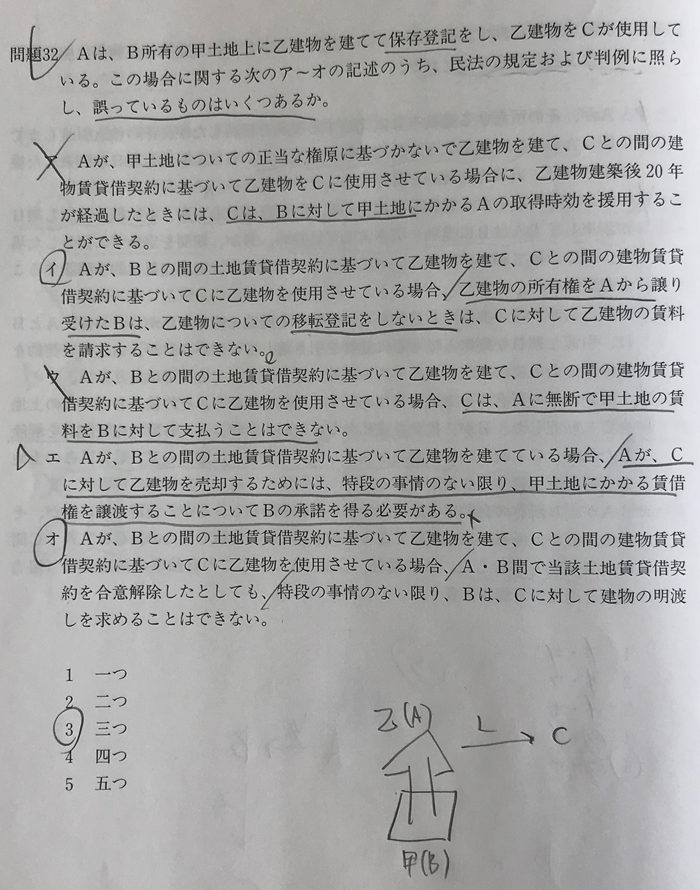 問題32 Aは、B所有の甲土地上に乙建物を建てて保存登記をし、乙建物をCが使用して
いる。この場合に関する次のア～オの記述のうち、民法の規定および判例に照ら
し、誤っているものはいくつあるか。
ア Aが、甲土地についての正当な権原に基づかないで乙建物を建て、Cとの間の建
物賃貸借契約に基づいて乙建物をCに使用させている場合に、乙建物建築後20年
が経過したときには、Cは、Bに対して甲土地にかかるAの取得時効を援用するこ
とができる。
イ Aが、Bとの間の土地賃貸借契約に基づいて乙建物を建て、Cとの間の建物賃貸
借契約に基づいてCに乙建物を使用させている場合、乙建物の所有権をAから譲り
受けたBは、乙建物についての移転登記をしないときは、Cに対して乙建物の賃料
を請求することはできない。
ウ Aが、Bとの間の土地賃貸借契約に基づいて乙建物を建て、Cとの間の建物賃貸
借契約に基づいてCに乙建物を使用させている場合、Cは、Aに無断で甲土地の賃
料をBに対して支払うことはできない。
エ Aが、Bとの間の土地賃貸借契約に基づいて乙建物を建てている場合、Aが、C
に対して乙建物を売却するためには、特段の事情のない限り、甲土地にかかる賃借
権を譲渡することについてBの承諾を得る必要がある。
オ Aが、Bとの間の土地賃貸借契約に基づいて乙建物を建て、Cとの間の建物賃貸
借契約に基づいてCに乙建物を使用させている場合、A・B間で当該土地賃貸借契
約を合意解除したとしても、特段の事情のない限り、Bは、Cに対して建物の明渡
しを求めることはできない。
1 一つ
2 二つ
3 三つ
4 四つ
5 五つ
乙(A)
L
C
甲(B)